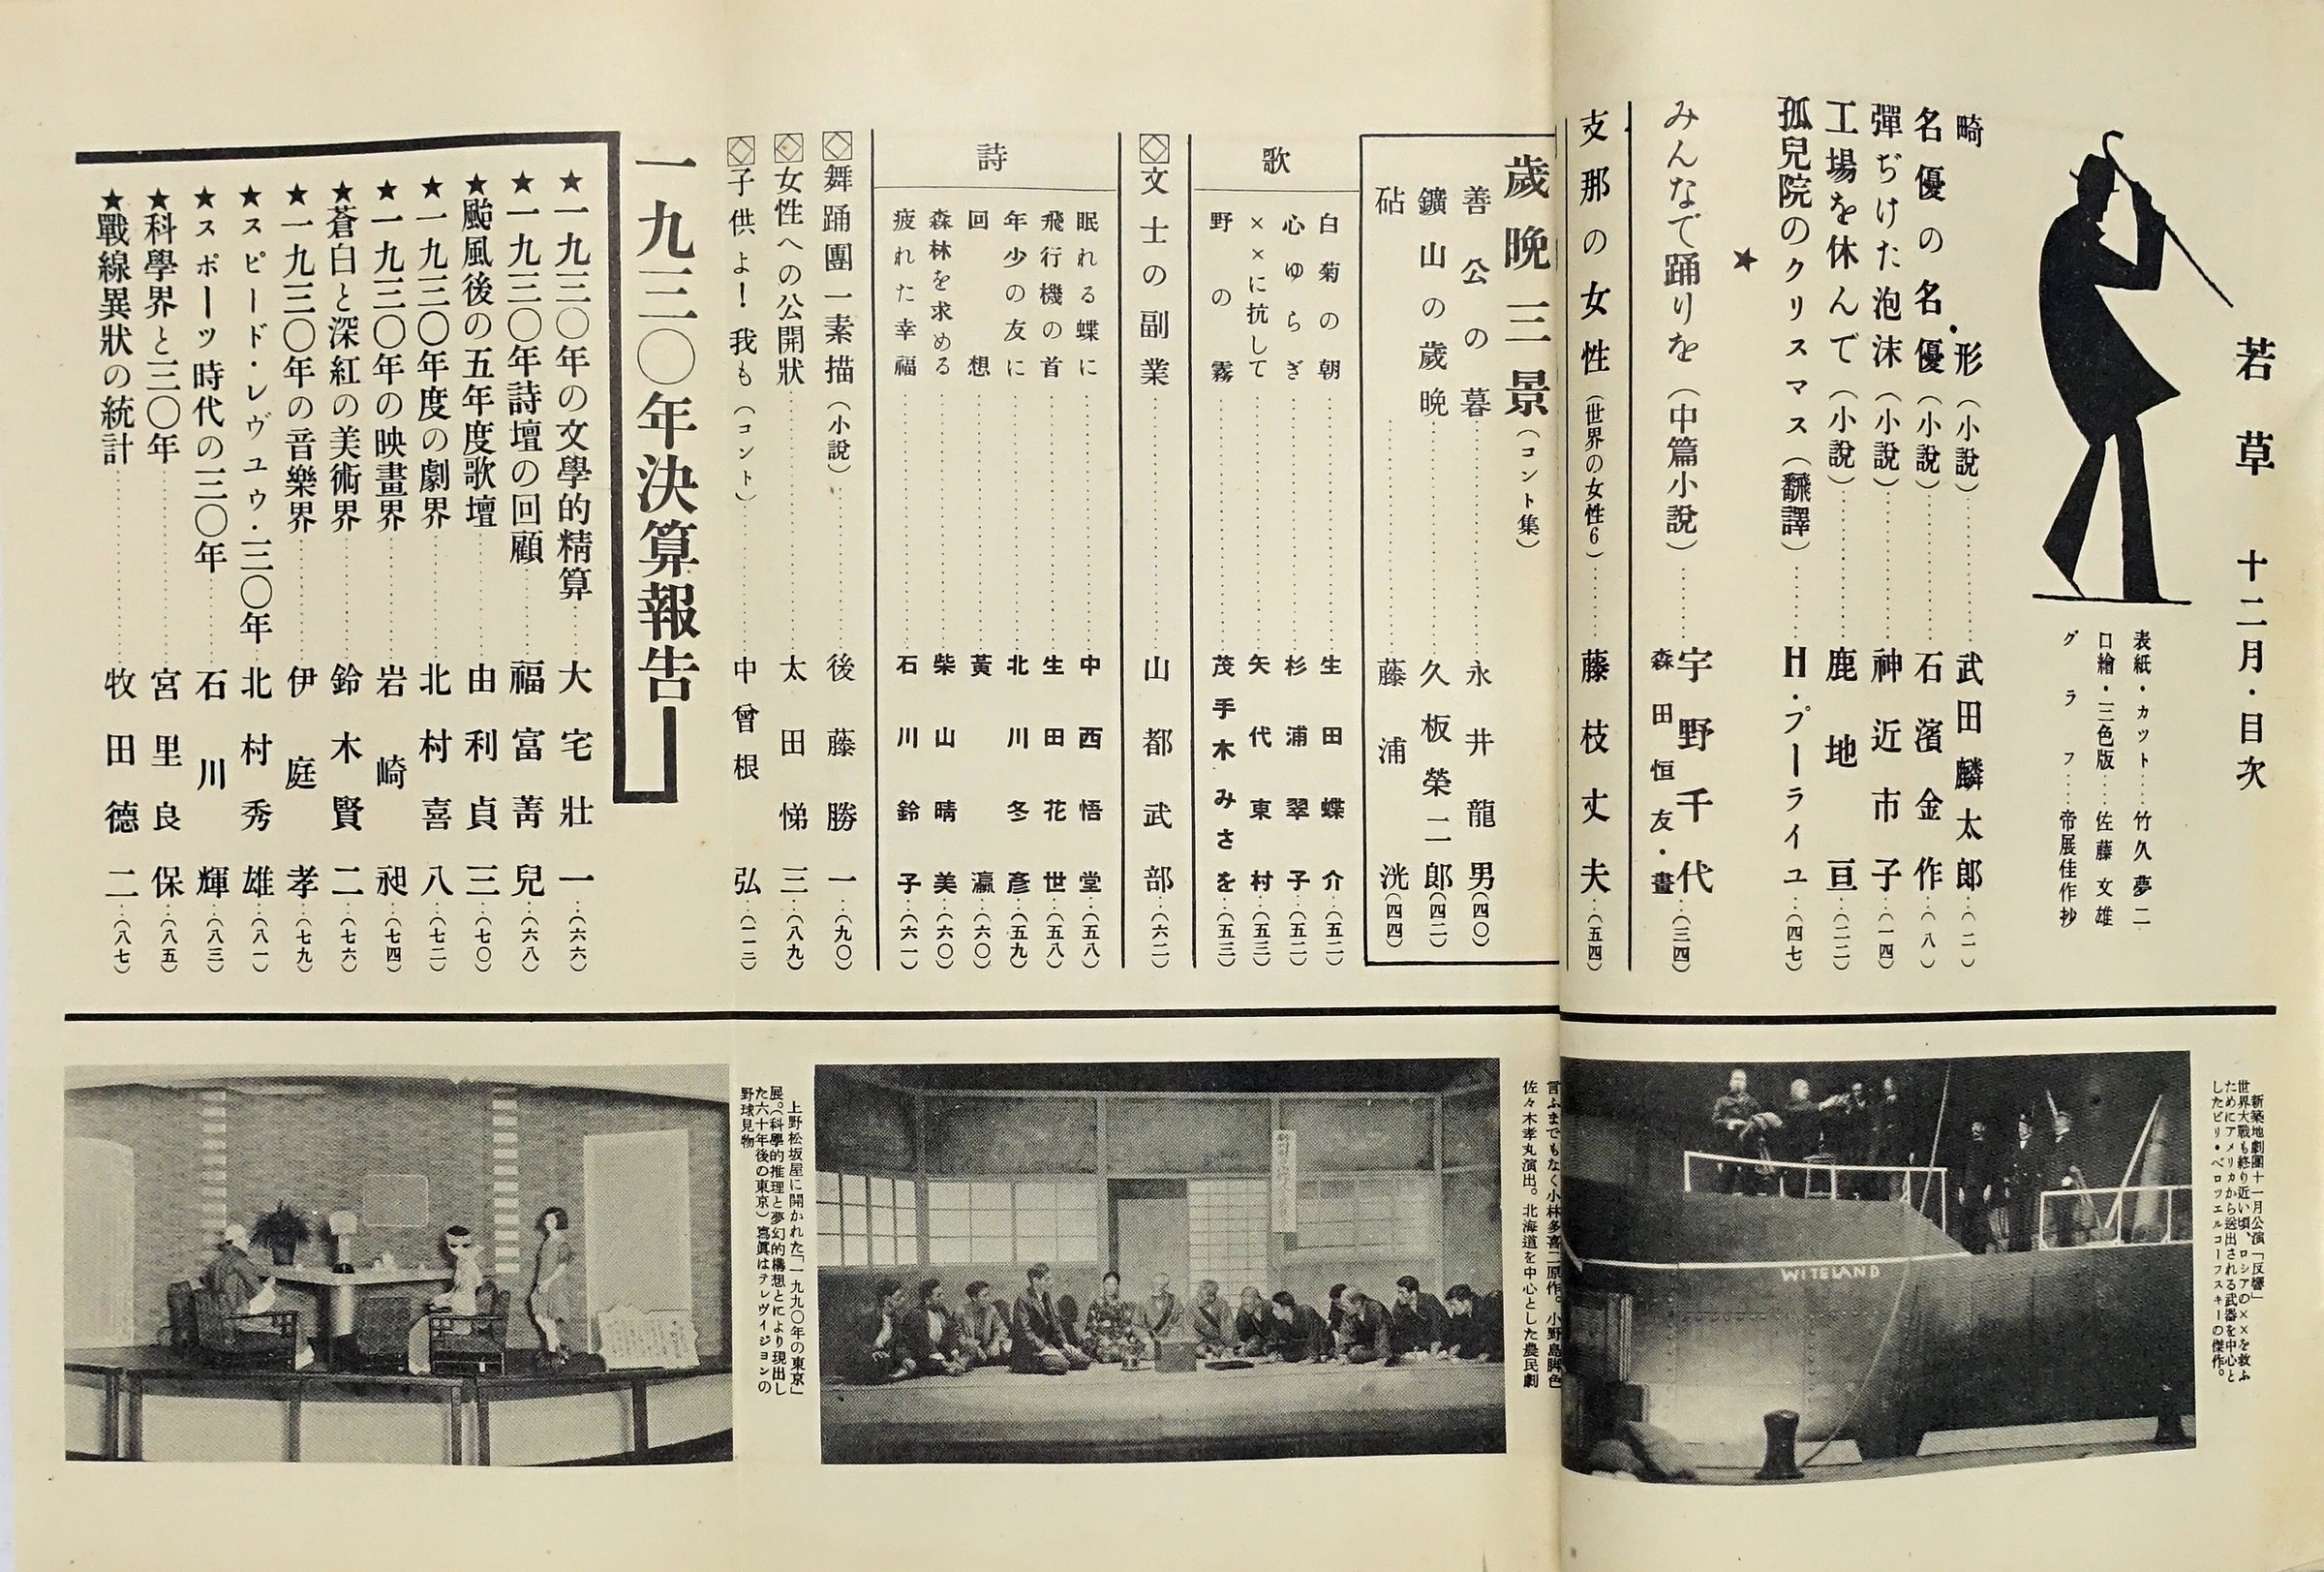 若草 十二月・目次
表紙・カット……竹久夢二
口繪・三色版……佐藤文雄
グラフ……帝展佳作抄
畸形（小說）……武田麟太郎…（二）
名優の名優（小說）……石濱金作…（八）
彈ぢけた泡沫（小說）……神近市子…（一四）
工場を休んで（小說）……鹿地亘…（二二）
孤兒院のクリスマス（飜譯）……H・プーライユ…（四七）
★
みんなで踊りを（中篇小說）……宇野千代…（三四）
森田恒友・畫
支那の女性（世界の女性6）……藤枝丈夫…（五四）
歲晩三景（コント集）
善公の暮……永井龍男（四〇）
鑛山の歲晩……久板榮二郎（四二）
砧……藤浦洸（四四）
歌
白菊の朝……生田蝶介…（五二）
心ゆらぎ……杉浦翠子…（五二）
××に抗して……矢代東村…（五三）
野の霧……茂手木みさを…（五三）
◇文士の副業……山都武部…（六二）
詩
眠れる蝶に……中西悟堂…（五八）
飛行機の首……生田花世…（五八）
年少の友に……北川冬彥…（五九）
回想……黃瀛…（六〇）
森林を求める……柴山晴美…（六〇）
疲れた幸福……石川鈴子…（六一）
◇舞踊團一素描（小說）……後藤勝一…（九〇）
◇女性への公開狀……太田悌三…（八九）
◇子供よ！我も（コント）……中曾根弘…（一一三）
一九三〇年決算報告
★一九三〇年の文學的精算……大宅壯一…（六六）
★一九三〇年詩壇の回顧……福富菁兒…（六八）
★颱風後の五年度歌壇……由利貞三…（七〇）
★一九三〇年度の劇界……北村喜八…（七二）
★一九三〇年の映畫界……岩崎昶…（七四）
★蒼白と深紅の美術界……鈴木賢二…（七六）
★一九三〇年の音樂界……伊庭孝…（七九）
★スピード・レヴユウ・三〇年……北村秀雄…（八一）
★スポーツ時代の三〇年……石川輝…（八三）
★科學界と三〇年……宮里良保…（八五）
★戰線異狀の統計……牧田德二…（八七）
新築地劇團十一月公演「反響」
世界大戰も終り近い頃、ロシアの××を救ふ
ためにアメリカから送出される武器を中心と
したビリ・ベロツエルコーフスキーの傑作。
WITELAND
言ふまでもなく小林多喜二原作。小野島脚色
佐々木孝丸演出。北海道を中心とした農民劇
上野松坂屋に開かれた「一九九〇年の東京」
展。（科學的推理と夢幻的構想とにより現出し
た六十年後の東京）寫眞はテレヴイジヨンの
野球見物